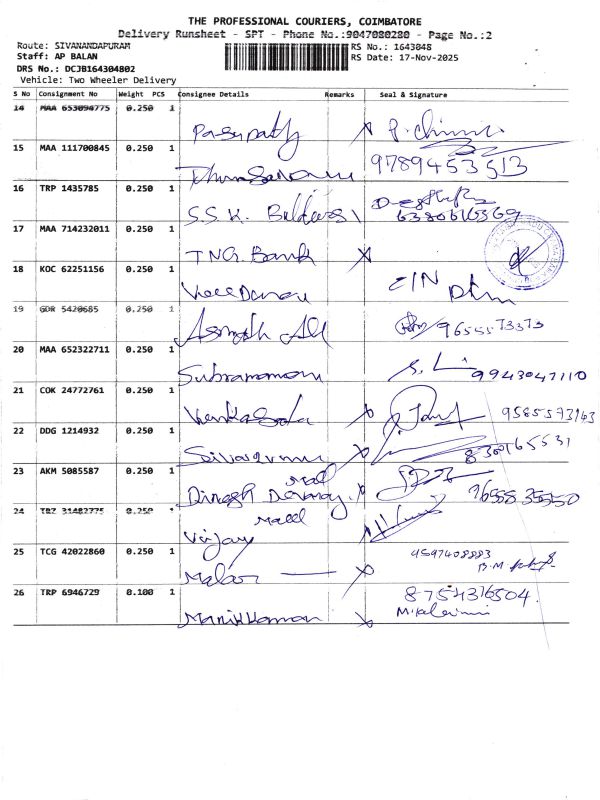 THE PROFESSIONAL COURIERS, COIMBATORE
Delivery Runsheet - SPT - Phone No.:9047080280 - Page No.:2
Route: SIVANANDAPURAM RS No.: 1643048
Staff: AP BALAN RS Date: 17-Nov-2025
DRS No.: DCJB164304802
Vehicle: Two Wheeler Delivery
S No Consignment No Weight PCS Consignee Details Remarks Seal & Signature
14 MAA 653094775 0.250 1
Pasupathy
15 MAA 111700845 0.250 1 9789453513
16 TRP 1435785 0.250 1
S.S.K. Builders 6380616369
17 MAA 714232011 0.250 1
TNG. Bank
18 KOC 62251156 0.250 1
19 GDR 5420685 0.250 1
9655573373
20 MAA 652322711 0.250 1
Subramamani 9943047110
21 COK 24772761 0.250 1
9585573143
22 DDG 1214932 0.250 1
8300165531
23 AKM 5085587 0.250 1
Dinesh 9655835550
24 TRZ 31482775 0.250 1
Vijay
25 TCG 42022860 0.250 1 9597408883
Malar B.M
26 TRP 6946729 0.100 1 8754316504
Manikkaman